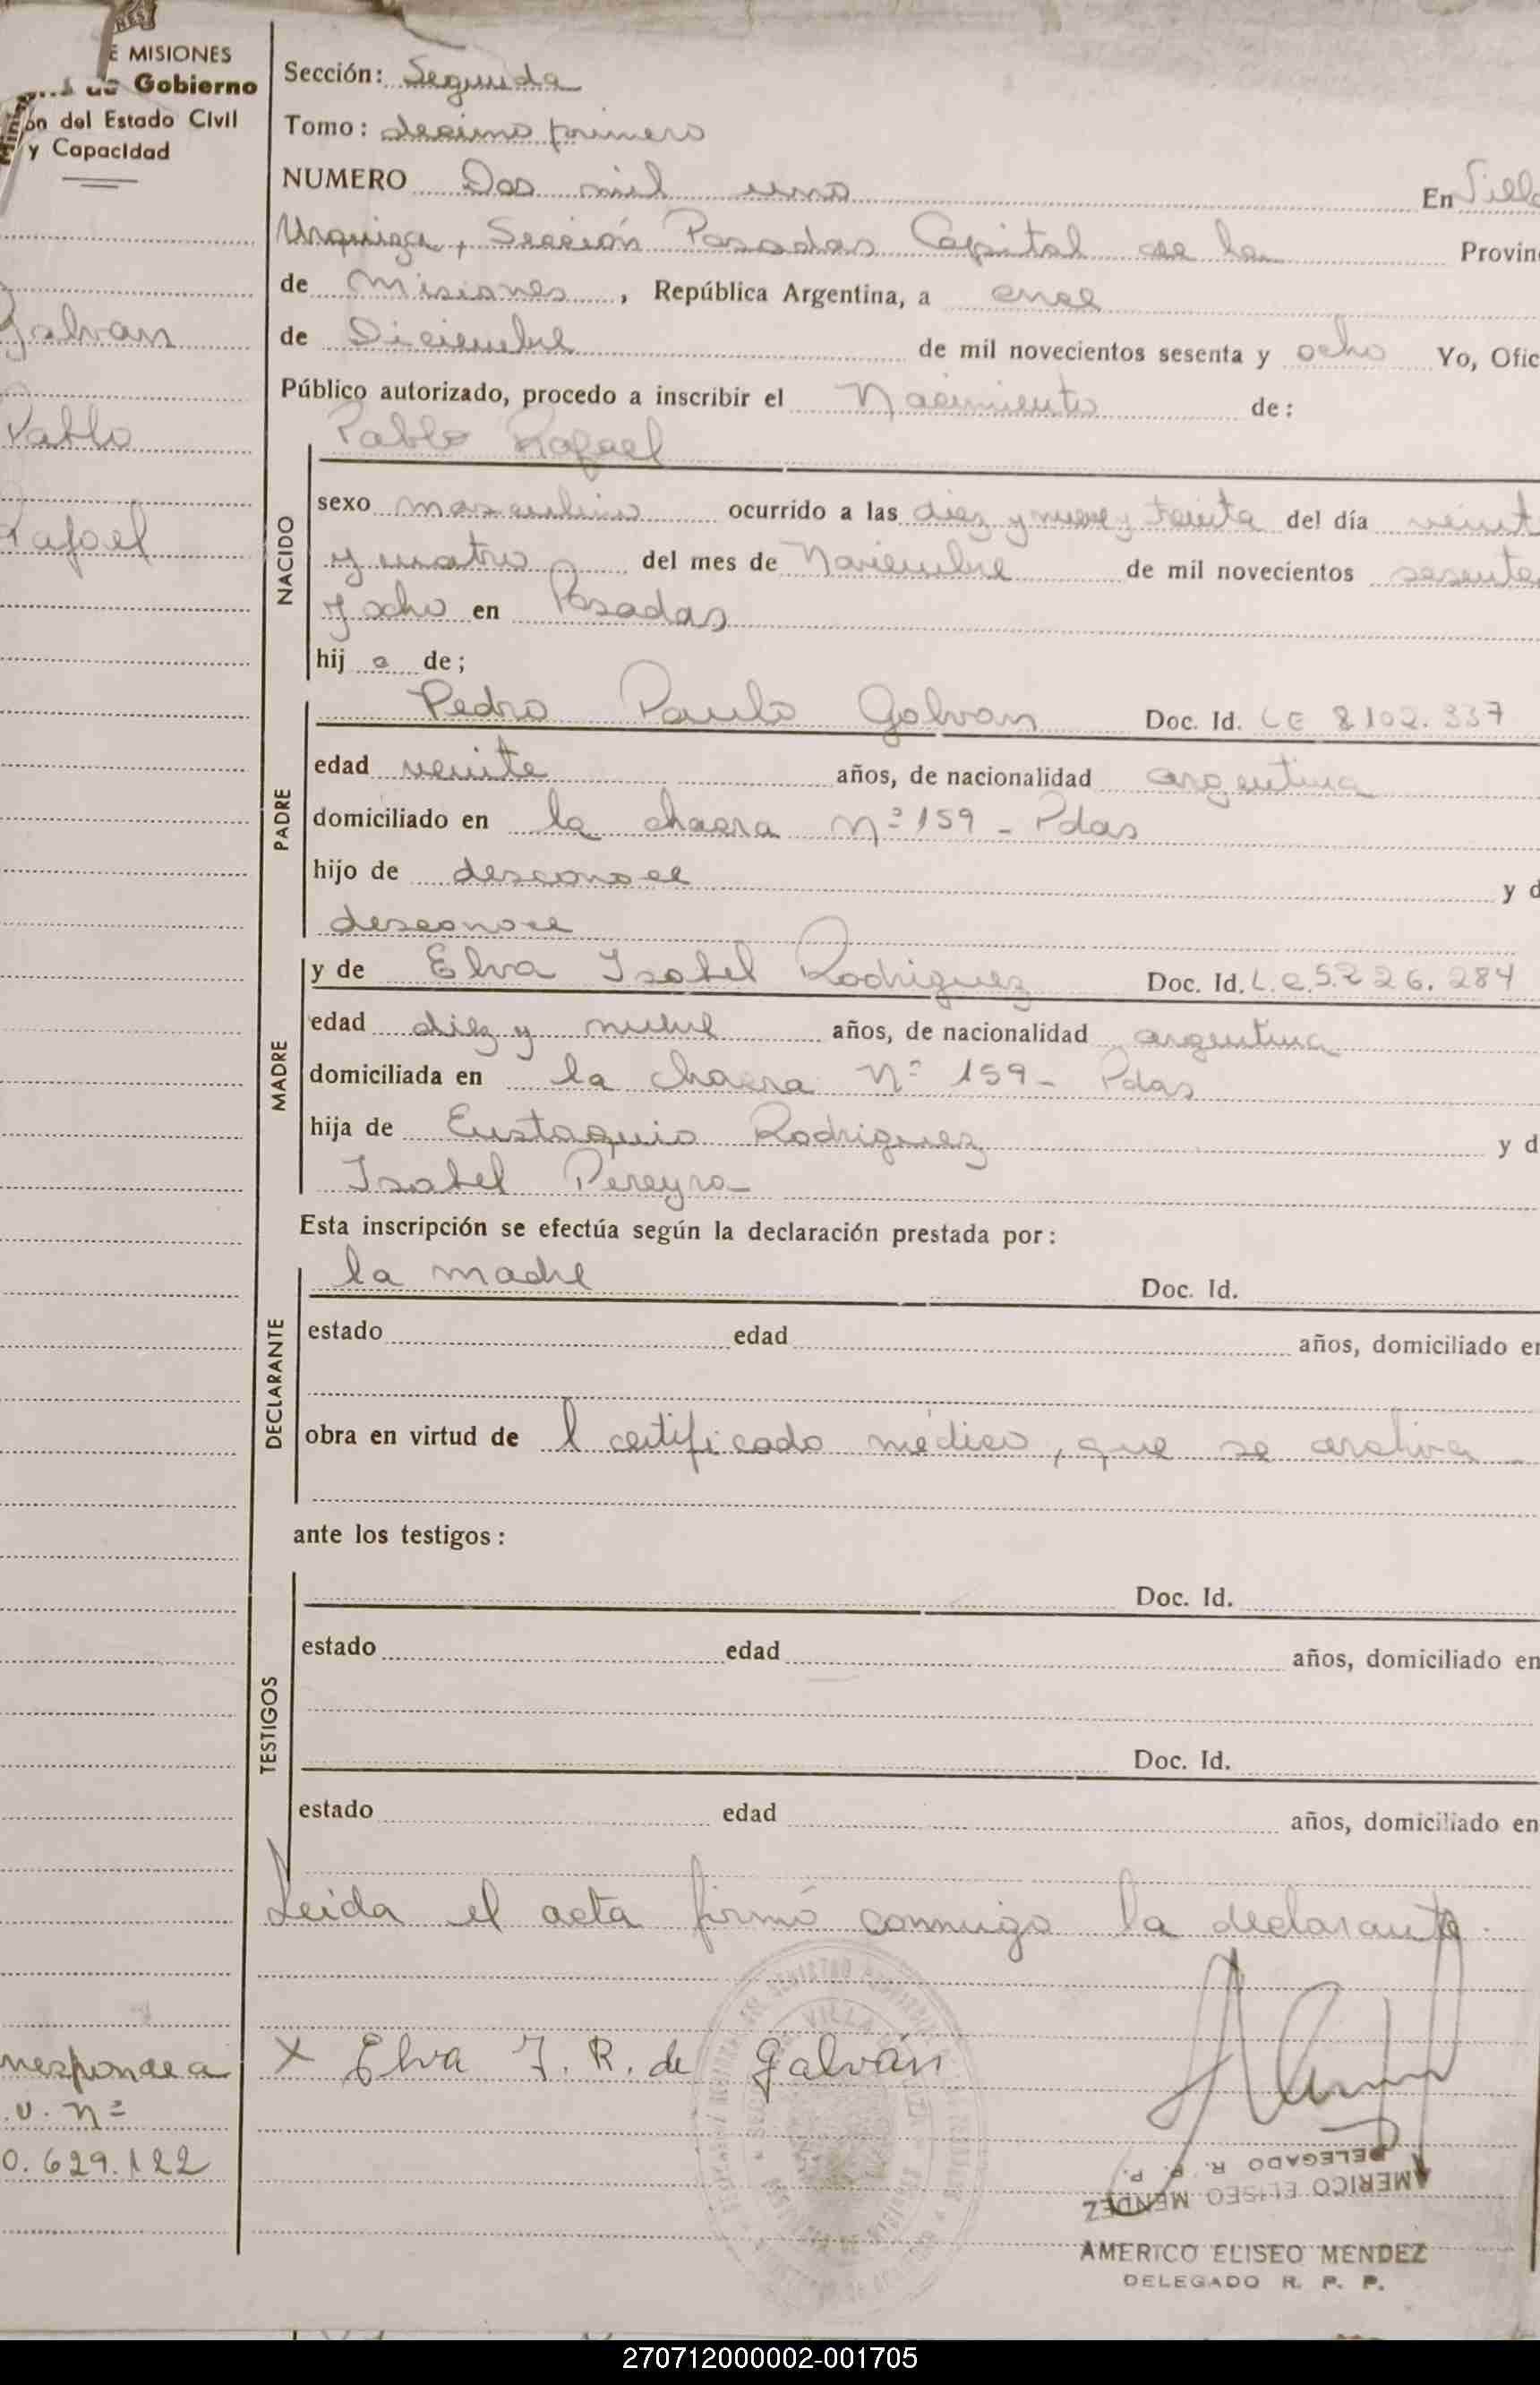 E MISIONES
de Gobierno
ón del Estado Civil
y Capacidad
Galvan
Pablo
Rafael
Sección: Segunda
Tomo: decimo primero
NUMERO Dos mil uno En Villa
Urquiza, Sección Posadas Capital de la Provin
de Misiones, República Argentina, a once
de Diciembre de mil novecientos sesenta y ocho Yo, Ofic
Público autorizado, procedo a inscribir el Nacimiento de:
NACIDO
Pablo Rafael
sexo masculino ocurrido a las diez y nueve y treinta del día veint
y cuatro del mes de Noviembre de mil novecientos sesenta
y ocho en Posadas
hij o de;
PADRE
Pedro Paulo Galvan Doc. Id. LE 8102.337
edad veinte años, de nacionalidad argentina
domiciliado en la chacra Nº 159 - Pdas
hijo de desconoce y d
desconoce
MADRE
y de Elva Isabel Rodriguez Doc. Id. L.C. 5.226.284
edad diez y nueve años, de nacionalidad argentina
domiciliada en la chacra Nº 159 - Pdas
hija de Eustaquio Rodriguez y d
Isabel Pereyra
Esta inscripción se efectúa según la declaración prestada por:
DECLARANTE
la madre Doc. Id.
estado edad años, domiciliado en
obra en virtud de l certificado médico, que se archiva
ante los testigos:
TESTIGOS
Doc. Id.
estado edad años, domiciliado en
Doc. Id.
estado edad años, domiciliado en
Leida el acta firmó conmigo la declarante.
X Elva I. R. de Galván
rresponde a
.U. Nº
0.629.122
DELEGADO R. P. P.
AMERICO ELISEO MENDEZ
AMERICO ELISEO MENDEZ
DELEGADO R. P. P.
270712000002-001705